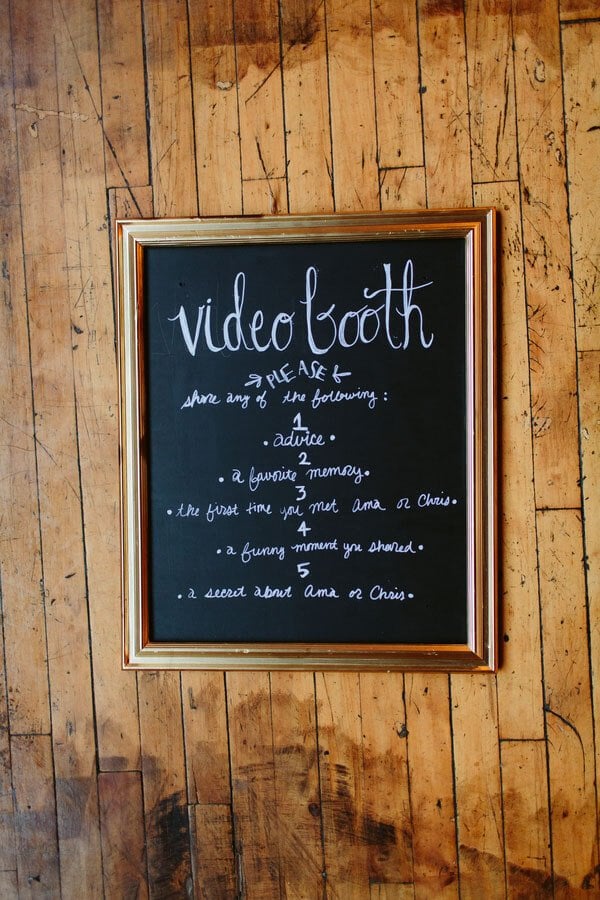 video booth
PLEASE
share any of the following:
1
• advice •
2
• a favorite memory •
3
• the first time you met Ama or Chris •
4
• a funny moment you shared •
5
• a secret about Ama or Chris •